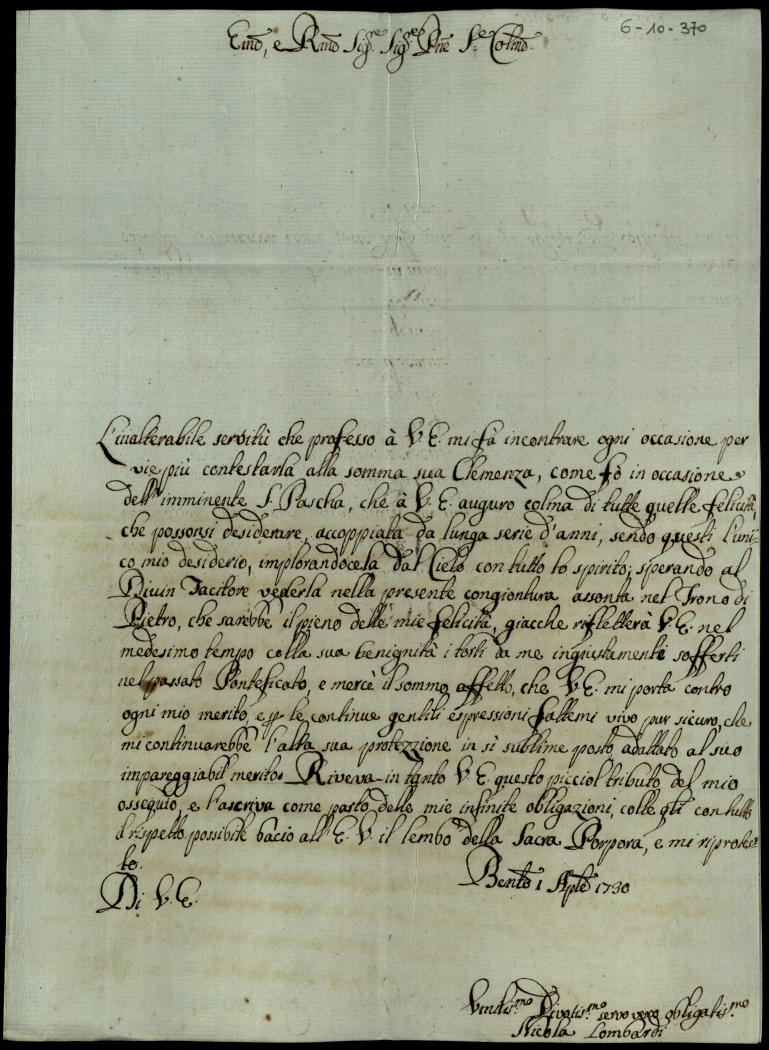 6-10-370
Em̃o, e Rm̃o Sig.re Sig.re Pñe S.re Colm̃o.
L'inalterabile servitù che professo à V. E. mi fà incontrare ogni occasione per
vie più contestarla alla somma sua Clemenza, come fò in occasione
dell'imminente S. Pascha, che à V. E. auguro colma di tutte quelle felicità,
che possonsi desiderare, accoppiata da lunga serie d'anni, sendo questi l'uni-
co mio desiderio, implorandocela dal Cielo con tutto lo spirito; sperando al
Divin Facitore vederla nella presente congiontura assonta nel Trono di
Pietro, che sarebbe il pieno delle mie felicità, giacche rifletterà V. E. nel
medesimo tempo colla sua benignità i torti da me ingiustamente sofferti
nel passato Ponteficato, e mercè il sommo affetto, che V. E. mi porta contro
ogni mio merito, e p le continue gentili espressioni fattemi vivo pur sicuro, che
mi continuarebbe l'alta sua protezzione in sì sublime posto adattato al suo
impareggiabil merito. Riceva in tanto V. E. questo picciol tributo del mio
ossequio, e l'ascriva come parto delle mie infinite obligazioni, colle q̃li con tutto
il rispetto possibile bacio all'E. V. il lembo della Sacra Porpora, e mi riprotes-
to.
Di V. E.
Bento 1 Aple 1730
Divotis.mo servo vero obligatis.mo
Nicola Lombardi